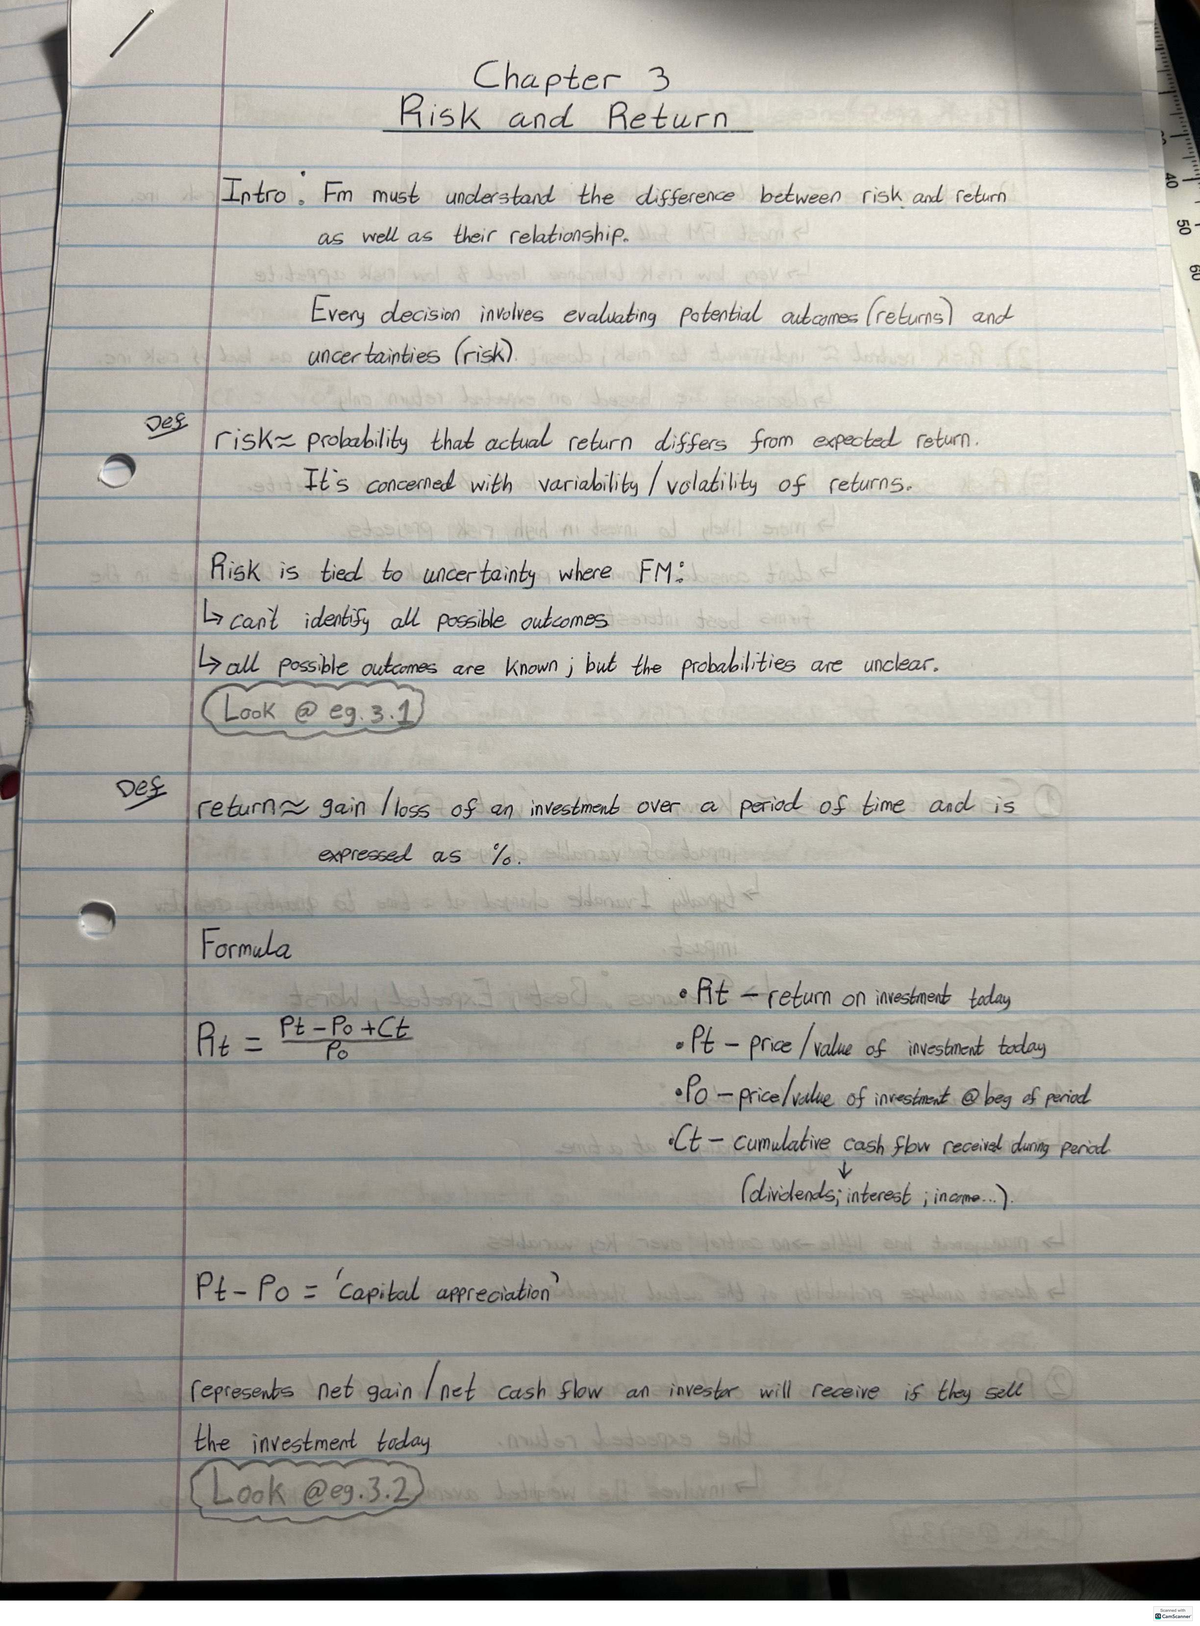 Chapter 3
Risk and Return
Intro: Fm must understand the difference between risk and return
as well as their relationship.
Every decision involves evaluating potential outcomes (returns) and
uncertainties (risk).
Def
risk ≈ probability that actual return differs from expected return.
It's concerned with variability / volatility of returns.
Risk is tied to uncertainty where FM:
↳ can't identify all possible outcomes
↳ all possible outcomes are known ; but the probabilities are unclear.
Look @ eg. 3.1
Def
return ≈ gain / loss of an investment over a period of time and is
expressed as %.
Formula
• Rt – return on investment today
Rt = Pt – Po + Ct
Po
• Pt – price / value of investment today
• Po – price/value of investment @ beg of period
• Ct – cumulative cash flow received during period
↓
(dividends; interest ; income...).
Pt – Po = 'capital appreciation'
represents net gain / net cash flow an investor will receive if they sell
the investment today
Look @ eg. 3.2
40
50
60
Scanned with
CamScanner